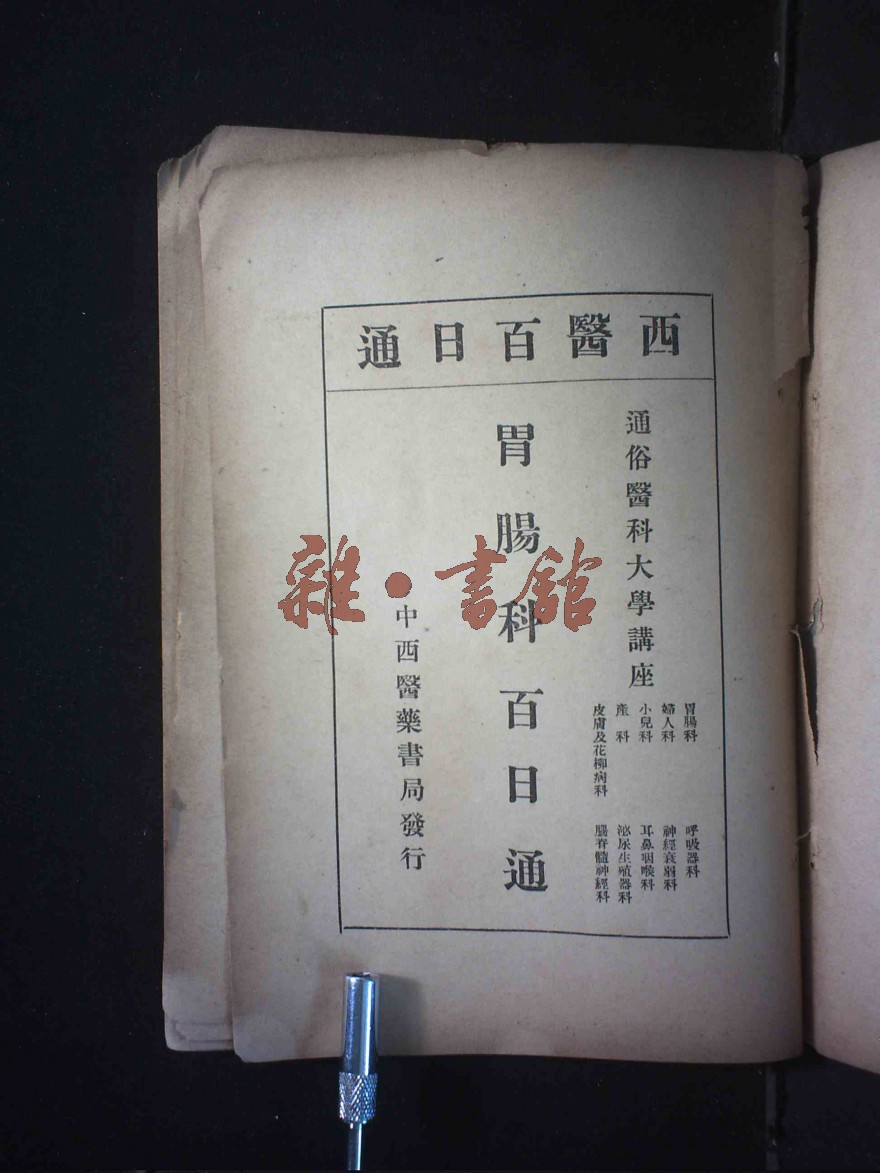 西醫百日通
通俗醫科大學講座
胃腸科
婦人科
小兒科
產科
皮膚及花柳病科
呼吸器科
神經衰弱科
耳鼻咽喉科
泌尿生殖器科
腦脊髓神經科
胃腸科百日通
中西醫藥書局發行
雜·書館